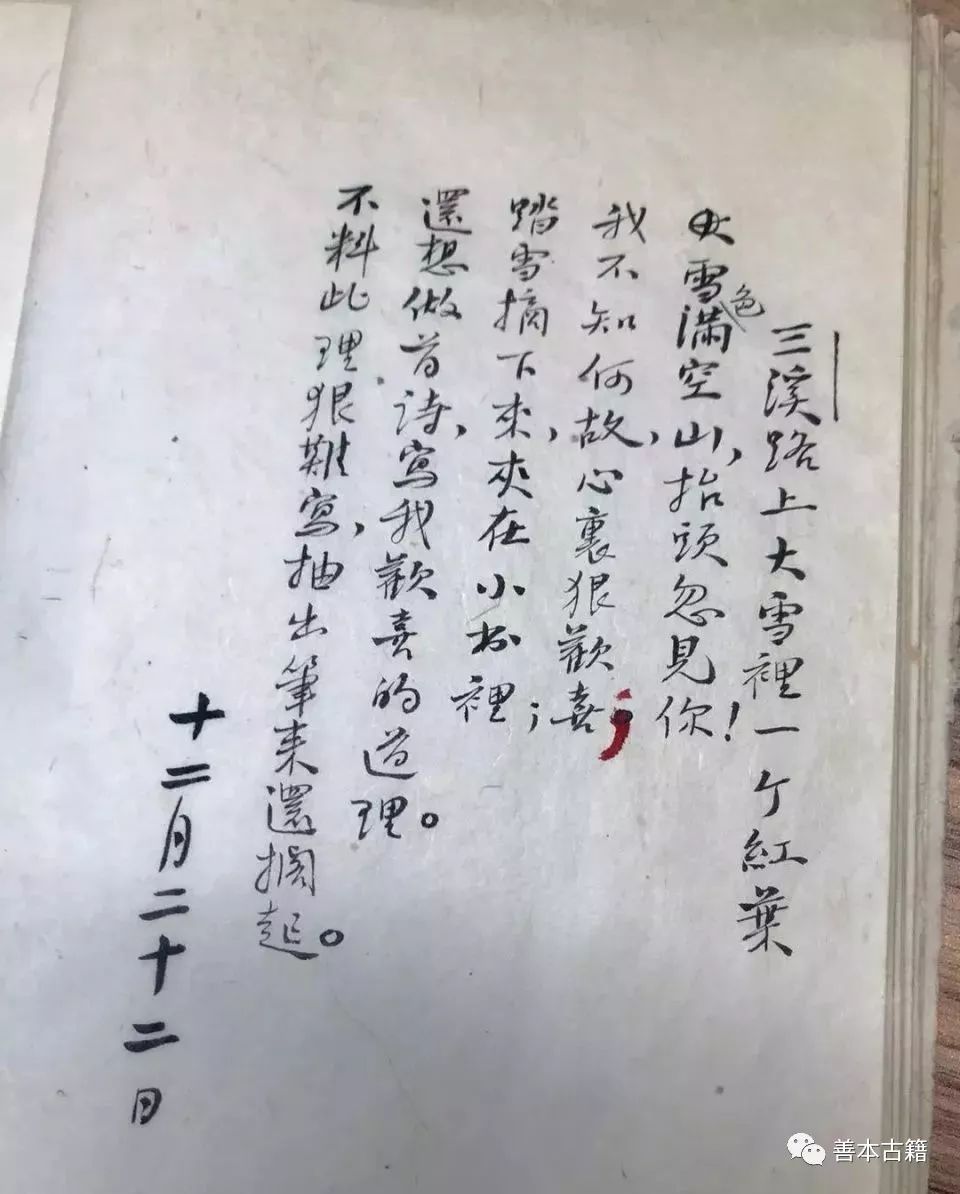 三溪路上大雪裡一个紅葉
雪色滿空山,抬頭忽見你!
我不知何故,心裏狠歡喜;
踏雪摘下來,夾在小書裡;
還想做首詩,寫我歡喜的道理。
不料此理狠難寫,抽出筆來還擱起。
十二月二十二日
善本古籍